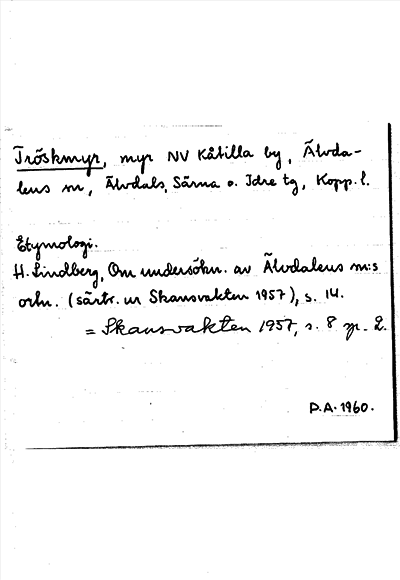 Tröskmyr, myr NV Kåtilla by, Älvda-
lens sn, Älvdals, Särna o. Idre tg, Kopp. l.
Etymologi.
H. Lindberg, Om undersökn. av Älvdalens sn:s
ortn. (särtr. ur Skansvakten 1957), s. 14.
= Skansvakten 1957, s. 8 sp. 2.
D.A. 1960.